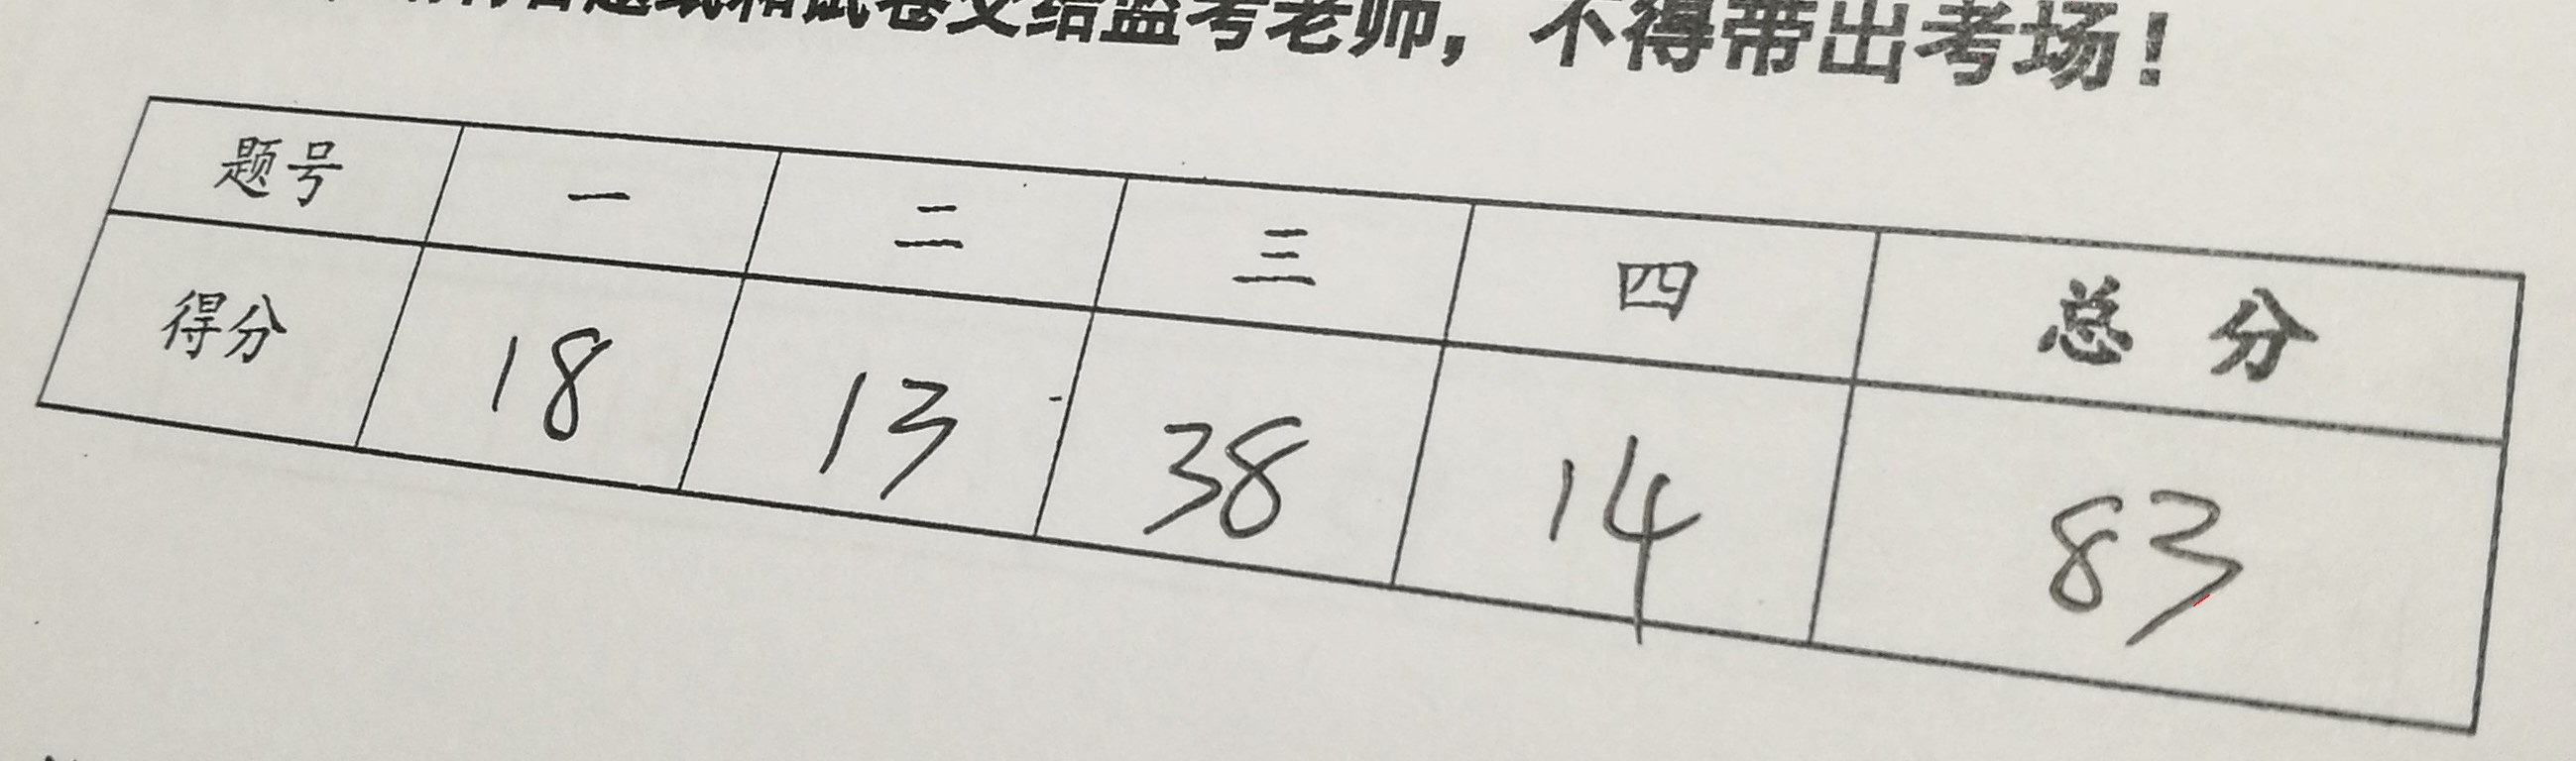 题纸和试卷交给监考老师，不得带出考场！
题号 一 二 三 四 总分
得分 18 13 38 14 83